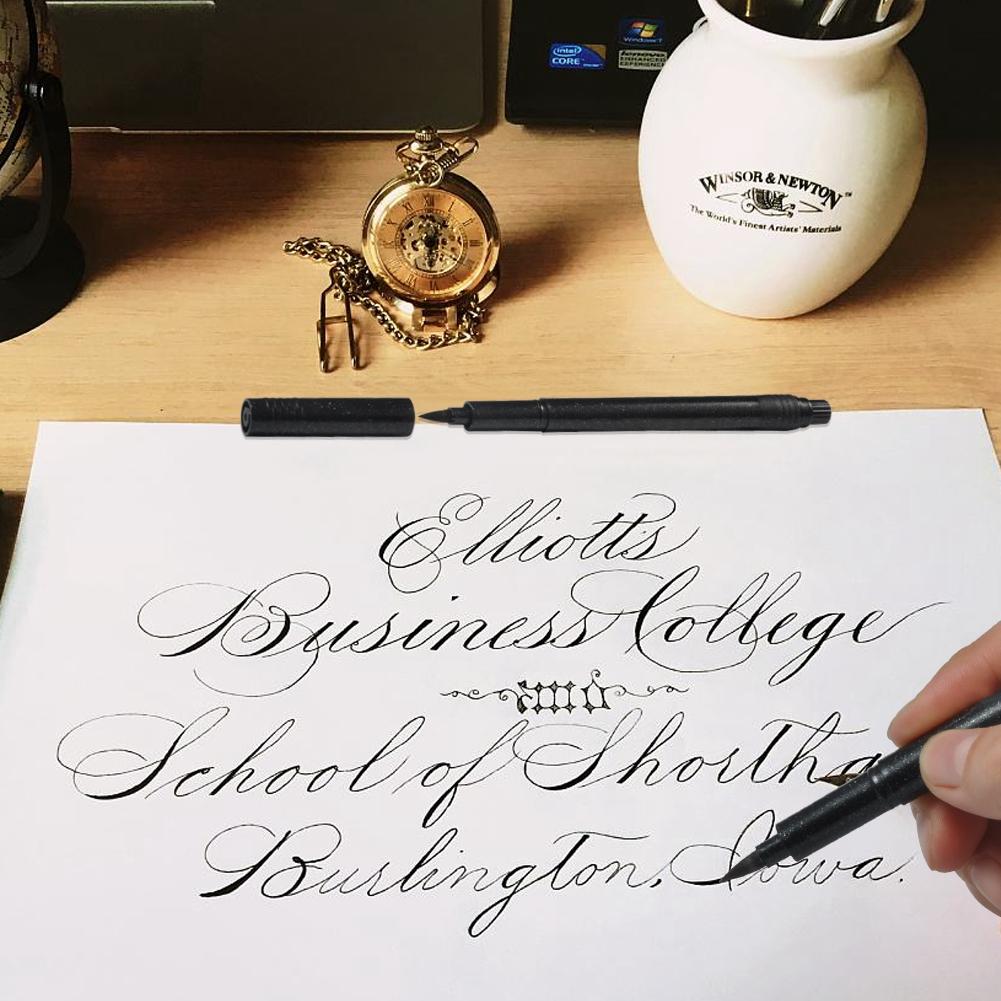 Windows 7
intel
CORE
lenovo
ENHANCED
EXPERIENCE
WINSOR & NEWTON™
The World's Finest Artists' Materials
Elliott's
Business College
and
School of Shortha
Burlington, Iowa.